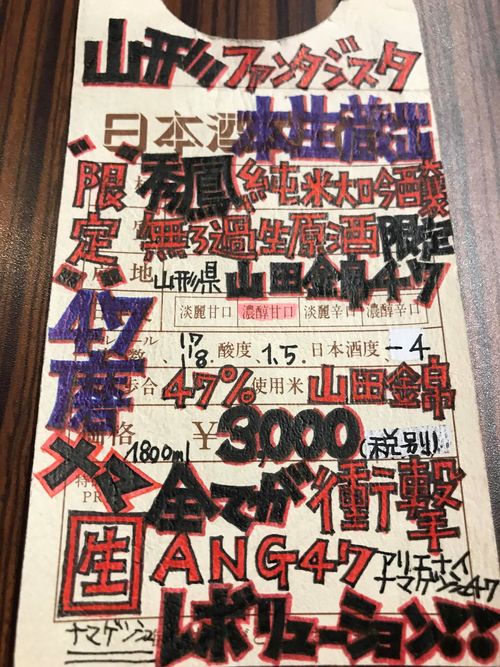 山形ファンタジスタ
日本酒 本生蔵出
限定 秀鳳 純米大吟醸
無ろ過生原酒 限定
地 山形県 山田錦47
淡麗甘口 濃醇甘口 淡麗辛口 濃醇辛口
47磨
17 18. 酸度 1.5. 日本酒度 -4
歩合 47% 使用米 山田錦
価格 ¥3,000 (税別)
1800ml
全てが衝撃
PR
生 ANG47 アリエナイ
ナマゲンシュ47
レボリューション!!
ナマゲンシュ